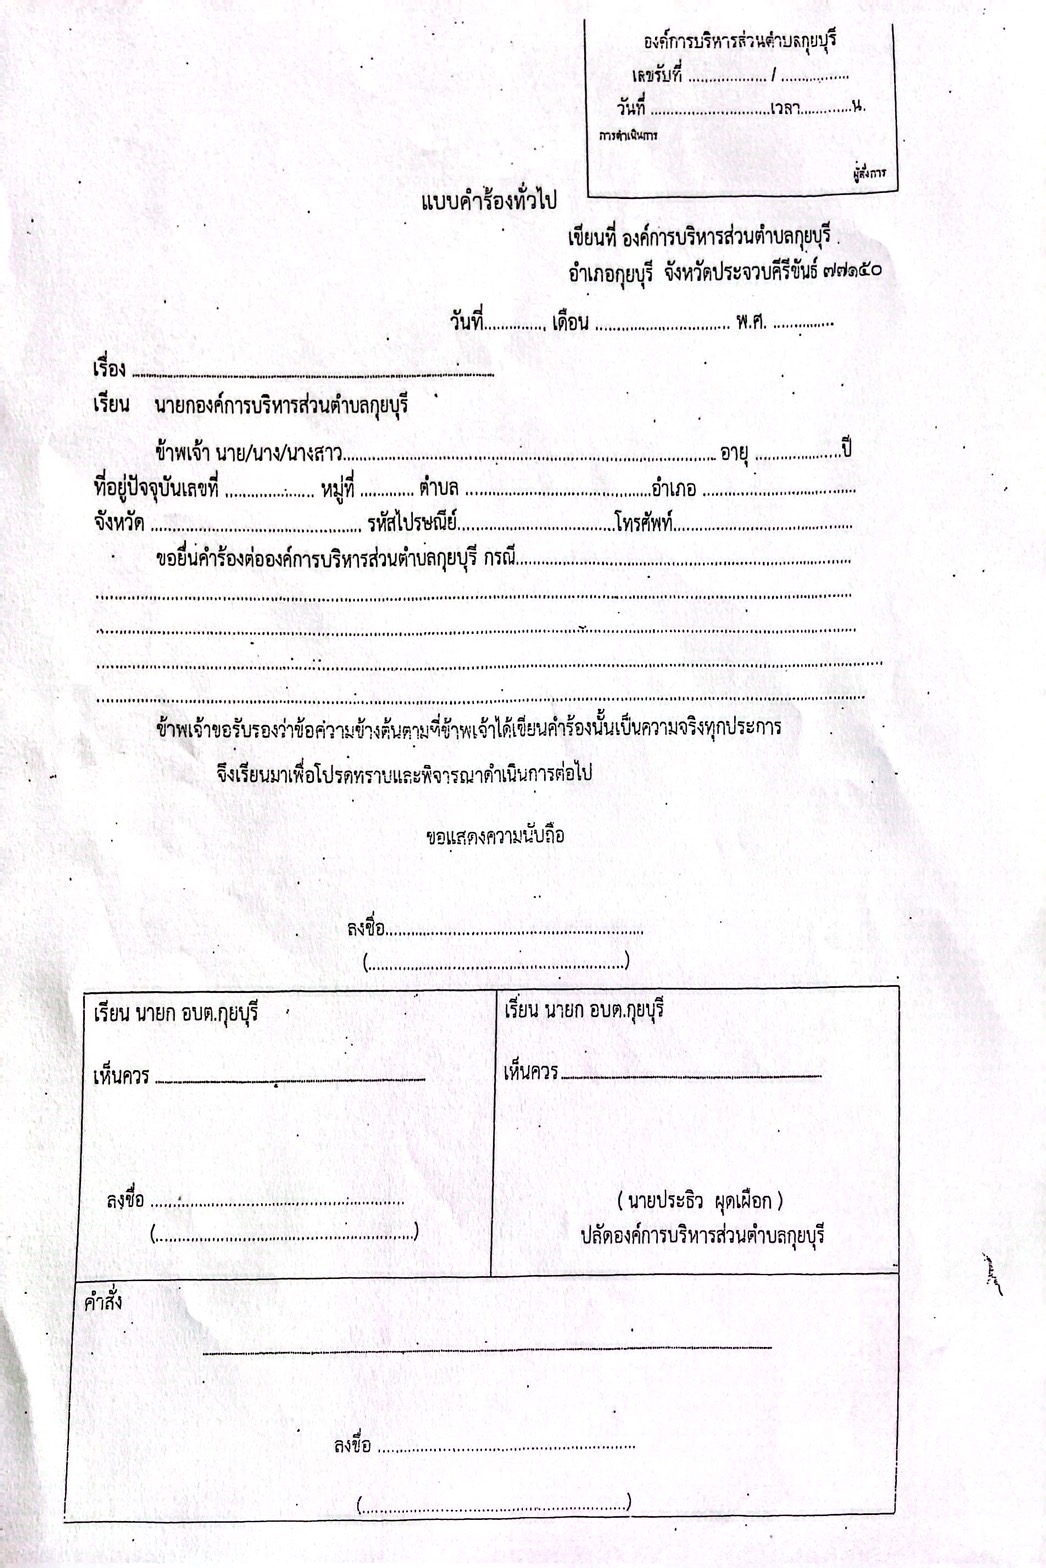 องค์การบริหารส่วนตำบลกุยบุรี
เลขรับที่ .................. / ................
วันที่ ............................เวลา............น.
การดำเนินการ
ผู้สั่งการ
แบบคำร้องทั่วไป
เขียนที่ องค์การบริหารส่วนตำบลกุยบุรี
อำเภอกุยบุรี จังหวัดประจวบคีรีขันธ์ ๗๗๑๕๐
วันที่.............. เดือน ............................... พ.ศ. ..............
เรื่อง ................................................................................
เรียน นายกองค์การบริหารส่วนตำบลกุยบุรี
ข้าพเจ้า นาย/นาง/นางสาว...................................................................................... อายุ ....................ปี
ที่อยู่ปัจจุบันเลขที่ ..................... หมู่ที่ ............ ตำบล ...........................................อำเภอ ...................................
จังหวัด ................................................. รหัสไปรษณีย์.....................................โทรศัพท์..........................................
ขอยื่นคำร้องต่อองค์การบริหารส่วนตำบลกุยบุรี กรณี..............................................................................
................................................................................................................................................................
................................................................................................................................................................
................................................................................................................................................................
................................................................................................................................................................
ข้าพเจ้าขอรับรองว่าข้อความข้างต้นตามที่ข้าพเจ้าได้เขียนคำร้องนั้นเป็นความจริงทุกประการ
จึงเรียนมาเพื่อโปรดทราบและพิจารณาดำเนินการต่อไป
ขอแสดงความนับถือ
ลงชื่อ............................................................
(............................................................)
เรียน นายก อบต.กุยบุรี
เห็นควร ................................................................
ลงชื่อ ...........................................................
(............................................................)
เรียน นายก อบต.กุยบุรี
เห็นควร................................................................
( นายประธิว ผุดเผือก )
ปลัดองค์การบริหารส่วนตำบลกุยบุรี
คำสั่ง
................................................................................................................................
ลงชื่อ ............................................................
(..............................................................)